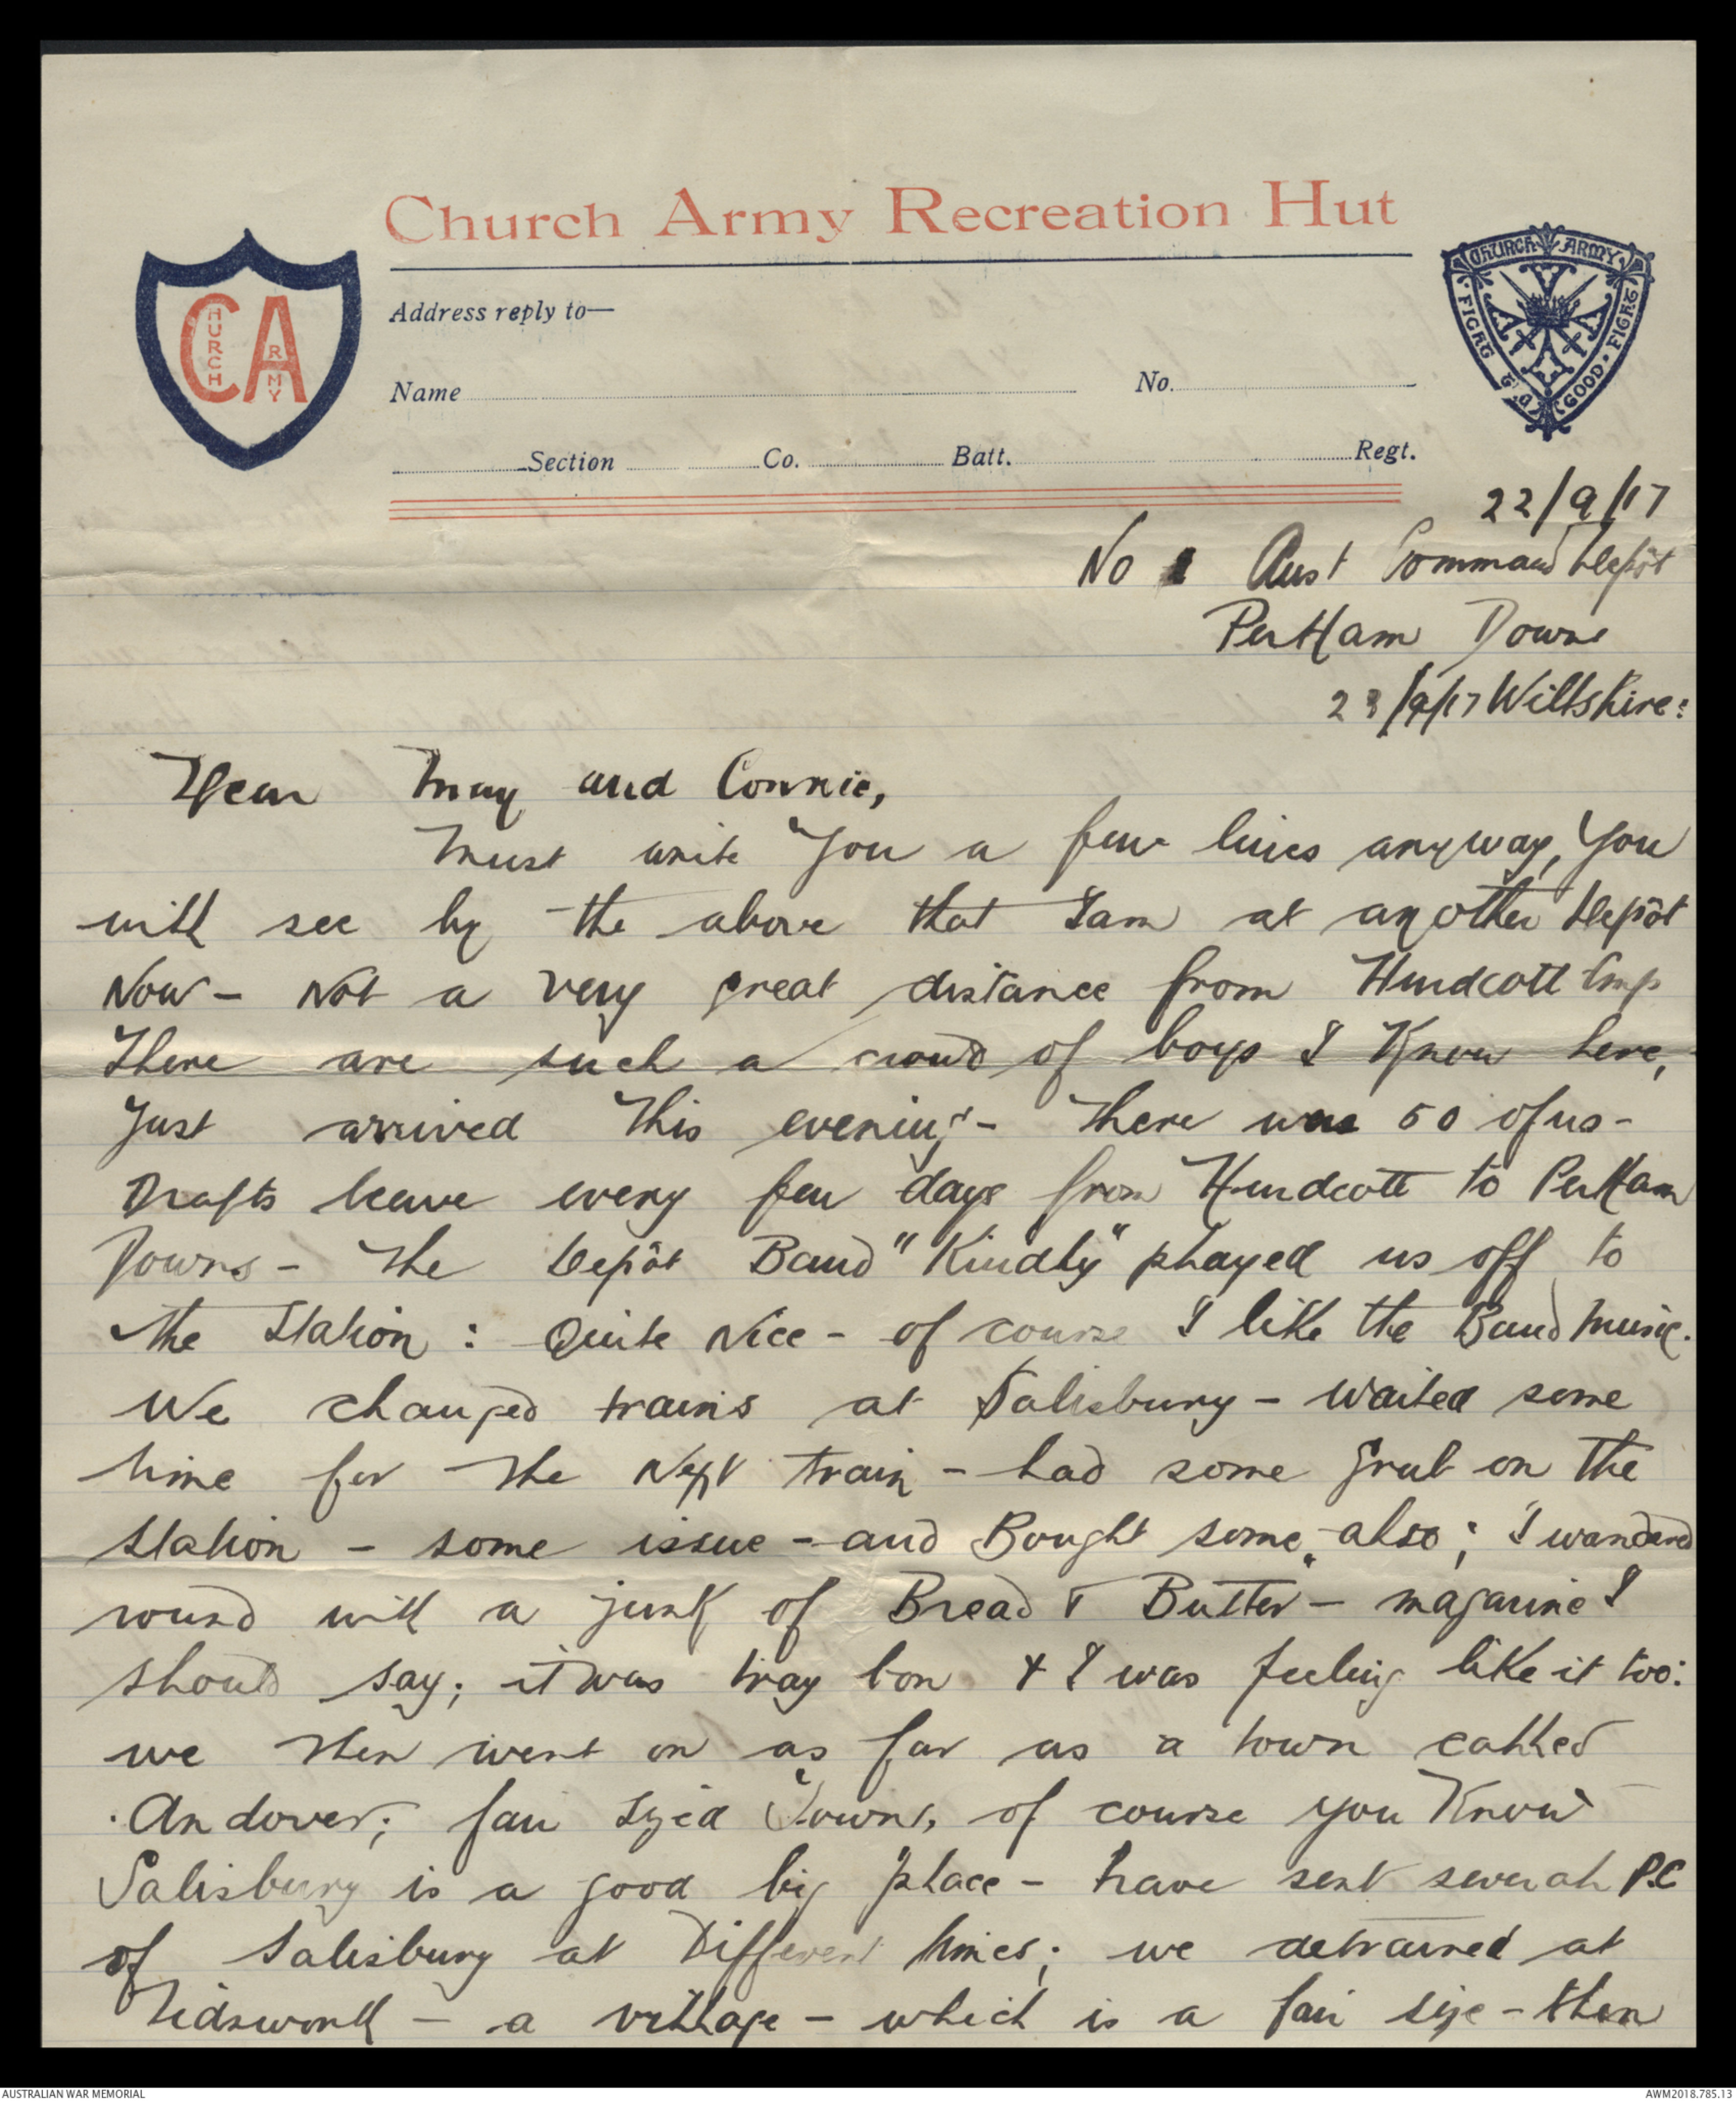 Church Army Recreation Hut
CHURCH ARMY
CHURCH ARMY
FIGHT THE GOOD FIGHT
Address reply to—
Name No.
Section Co. Batt. Regt.
22/9/17
No 1 Aust Command Depôt
Perham Downs
23/9/17 Wiltshire:
Dear May and Connie,
Must write You a few lines anyway, You
will see by the above that I am at another Depôt
Now - Not a very great distance from Hurdcott Cmp
There are such a crowd of boys I Know here,
Just arrived this evening - there was 50 of us -
Drafts leave every few days from Hurdcott to Perham
Downs - The Depôt Band "Kindly" played us off to
the Station : Quite Nice - of course I like the Band music.
We changed trains at Salisbury - waited some
time for the Next train - had some grub on the
station - some issue - and Bought some, also; I wandered
round with a junk of Bread & Butter - magarine I
should say; it was tray bon & I was feeling like it too:
we then went on as far as a town called
Andover; fair sized Town, of course you Know
Salisbury is a good big place - have sent several P.C
of Salisbury at Different times; we detrained at
Tidsworth - a village - which is a fair size - then
AUSTRALIAN WAR MEMORIAL AWM2018.785.13